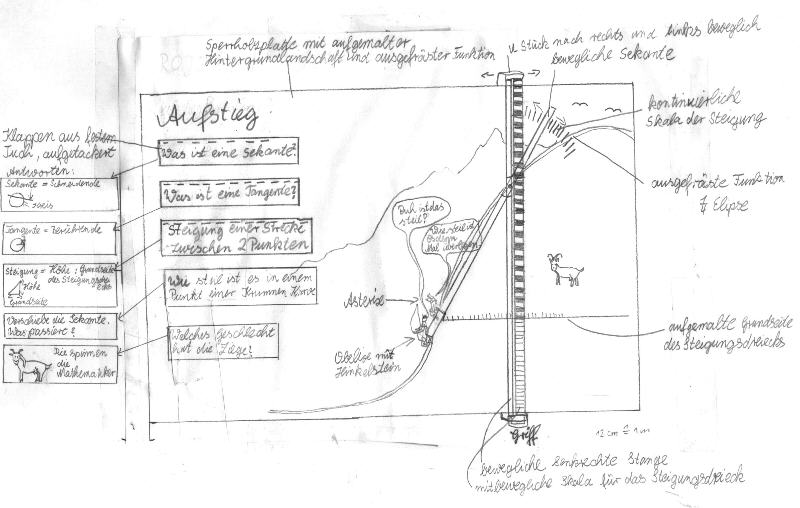 Sperrholzplatte mit aufgemalter
Hintergrundlandschaft und ausgefräster Funktion
U Stück nach rechts und links beweglich
bewegliche Sekante
kontinuierliche
Skala der Steigung
ausgefräste Funktion
Elipse
Klappen aus festem
Tuch, aufgetackert
Antworten:
Sekante = Schneidende
Kreis
Tangente = Berührende
Steigung = Höhe : Grundseite
des Steigungsdreiecks
Höhe
Grundseite
Verschiebe die Sekante.
Was passiert?
Die spinnen
die
Mathematiker
Aufstieg
Was ist eine Sekante?
Was ist eine Tangente?
Steigung einer Strecke
zwischen 2 Punkten
Wie steil ist es in einem
Punkt einer Krummen Kurve
Welches Geschlecht
hat die Ziege?
Puh ist das
steil?
Asterix
Obelix mit
Hinkelstein
aufgemalte Grundseite
des Steigungsdreiecks
Griff
12 cm ≙ 1 m
bewegliche senkrechte Stange
mitbewegliche Skala für das Steigungsdreieck